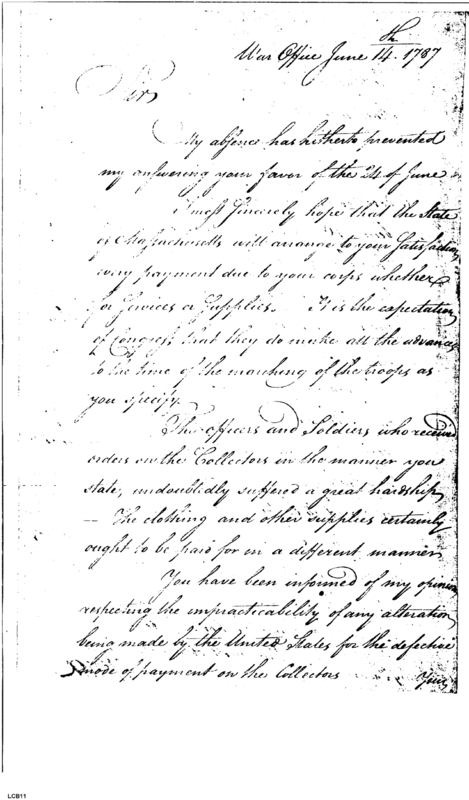 War Office June 14th 1787
Sir,
My absence has hitherto prevented
my answering your favor of the 24 of June
I most sincerely hope that the State
of Massachusetts will arrange to your satisfaction
every payment due to your corps whether
for services or supplies. It is the expectation
of Congress that they do make all the advances
to the time of the marching of the troops as
you specify.
The officers and Soldiers who received
orders on the Collectors in the manner you
state, undoubtedly suffered a great hardship,
– The clothing and other supplies certainly
ought to be paid for in a different manner
You have been informed of my opinion
respecting the impracticability of any alteration
being made by the United States for the defective
mode of payment on the Collectors
Your
LCB11